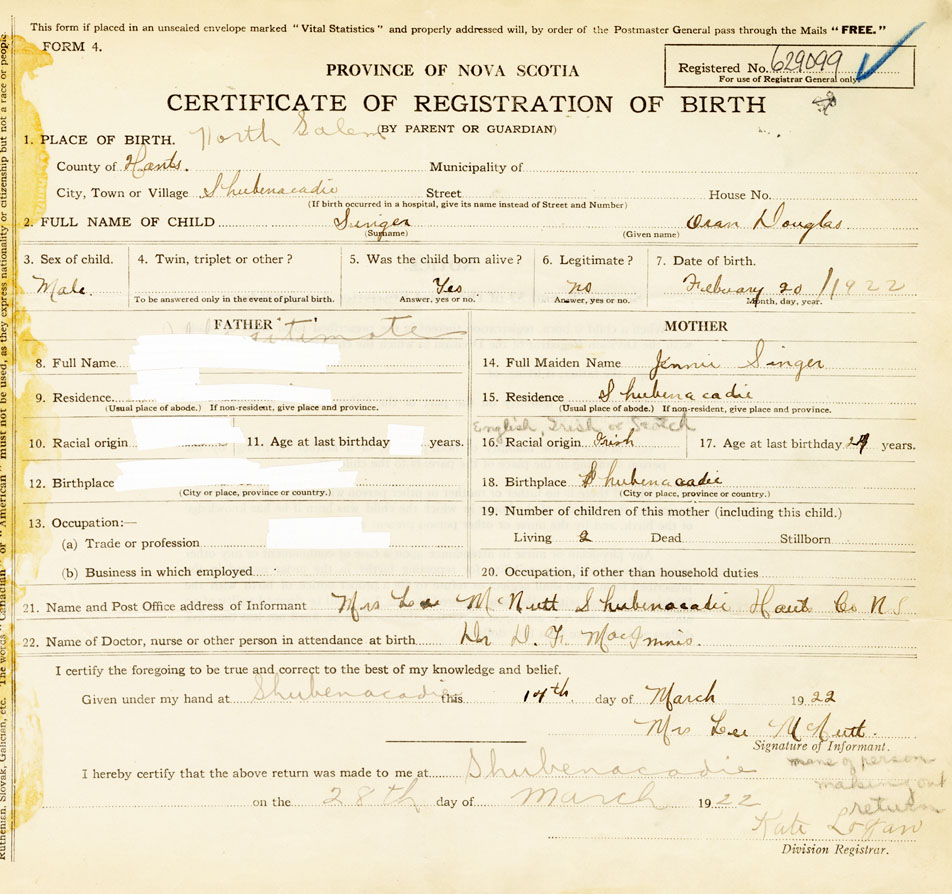 This form if placed in an unsealed envelope marked "Vital Statistics" and properly addressed will, by order of the Postmaster General pass through the Mails "FREE."
FORM 4.
Registered No. 629099
For use of Registrar General only.
PROVINCE OF NOVA SCOTIA
CERTIFICATE OF REGISTRATION OF BIRTH
(BY PARENT OR GUARDIAN)
1. PLACE OF BIRTH. North Salem
County of Hants. Municipality of
City, Town or Village Shubenacadie Street House No.
(If birth occurred in a hospital, give its name instead of Street and Number)
2. FULL NAME OF CHILD Singer Oran Douglas
(Surname) (Given name)
3. Sex of child. 4. Twin, triplet or other? 5. Was the child born alive? 6. Legitimate? 7. Date of birth.
Male. Yes no February 20 / 1922
To be answered only in the event of plural birth. Answer, yes or no. Answer, yes or no. Month, day, year.
FATHER MOTHER
8. Full Name 14. Full Maiden Name Jennie Singer
9. Residence. 15. Residence Shubenacadie
(Usual place of abode.) If non-resident, give place and province. (Usual place of abode.) If non-resident, give place and province.
English, Irish or Scotch
10. Racial origin 11. Age at last birthday years. 16. Racial origin Irish 17. Age at last birthday years.
12. Birthplace 18. Birthplace Shubenacadie
(City or place, province or country.) (City or place, province or country.)
13. Occupation:— 19. Number of children of this mother (including this child.)
(a) Trade or profession Living 2 Dead Stillborn
(b) Business in which employed 20. Occupation, if other than household duties
21. Name and Post Office address of Informant Mrs Lee McNutt Shubenacadie Hants Co N.S.
22. Name of Doctor, nurse or other person in attendance at birth. Dr D. F. MacInnis.
I certify the foregoing to be true and correct to the best of my knowledge and belief.
Given under my hand at Shubenacadie this 17th day of March 1922
Mrs Lee McNutt.
Signature of Informant.
name of person making out return
I hereby certify that the above return was made to me at Shubenacadie
on the 28th day of March 1922
Kate Logan
Division Registrar.
Ruthenian, Slovak, Galician, etc. The words "Canadian" or "American" must not be used, as they express nationality or citizenship but not a race or people.